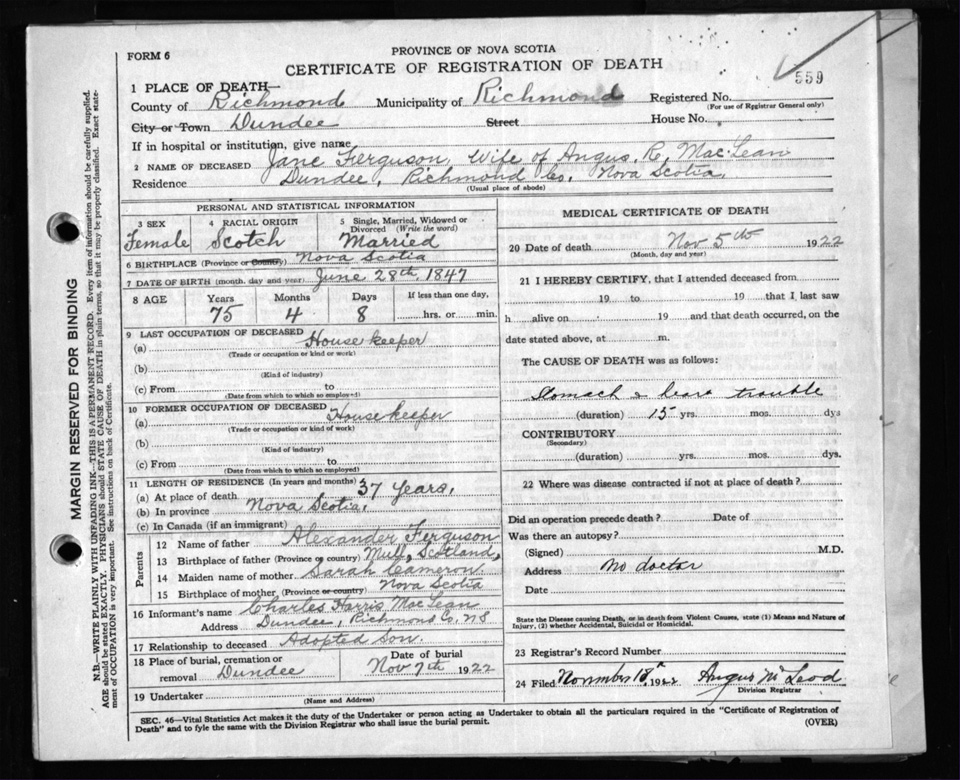 FORM 6
PROVINCE OF NOVA SCOTIA
CERTIFICATE OF REGISTRATION OF DEATH
559
1 PLACE OF DEATH—
County of Richmond Municipality of Richmond Registered No.
(For use of Registrar General only)
City or Town Dundee Street House No.
If in hospital or institution, give name
2 NAME OF DECEASED Jane Ferguson, Wife of Angus, R, MacLean
Residence Dundee, Richmond Co, Nova Scotia,
(Usual place of abode)
PERSONAL AND STATISTICAL INFORMATION
3 SEX 4 RACIAL ORIGIN 5 Single, Married, Widowed or Divorced (Write the word)
Female Scotch Married
6 BIRTHPLACE (Province or Country) Nova Scotia
7 DATE OF BIRTH (month, day and year) June 28th, 1847
8 AGE Years Months Days If less than one day,
75 4 8 hrs. or min.
9 LAST OCCUPATION OF DECEASED
(a) House keeper
(Trade or occupation or kind or work)
(b)
(Kind of industry)
(c) From to
(Date from which to which so employed)
10 FORMER OCCUPATION OF DECEASED
(a) House keeper
(Trade or occupation or kind or work)
(b)
(Kind of industry)
(c) From to
(Date from which to which so employed)
11 LENGTH OF RESIDENCE (In years and months)
(a) At place of death 37 years,
(b) In province Nova Scotia,
(c) In Canada (if an immigrant)
Parents
12 Name of father Alexander Ferguson
13 Birthplace of father (Province or country) Mull, Scotland,
14 Maiden name of mother Sarah Cameron
15 Birthplace of mother (Province or country) Nova Scotia
16 Informant's name Charles Harris MacLean
Address Dundee, Richmond Co, NS
17 Relationship to deceased Adopted Son.
18 Place of burial, cremation or removal Dundee Date of burial Nov 7th 1922
19 Undertaker
(Name and Address)
MEDICAL CERTIFICATE OF DEATH
20 Date of death Nov 5th 1922
(Month, day and year)
21 I HEREBY CERTIFY, that I attended deceased from
19 to 19 that I last saw
h alive on 19 and that death occurred, on the
date stated above, at m.
The CAUSE OF DEATH was as follows:
Stomach & heart trouble
(duration) 15 yrs. mos. dys
CONTRIBUTORY
(Secondary)
(duration) yrs. mos. dys.
22 Where was disease contracted if not at place of death?
Did an operation precede death? Date of
Was there an autopsy?
(Signed) M.D.
Address No doctor
Date
State the Disease causing Death, or in death from Violent Causes, state (1) Means and Nature of
Injury, (2) whether Accidental, Suicidal or Homicidal.
23 Registrar's Record Number
24 Filed November 18th 1922 Angus McLeod
Division Registrar
SEC. 46—Vital Statistics Act makes it the duty of the Undertaker or person acting as Undertaker to obtain all the particulars required in the "Certificate of Registration of
Death" and to fyle the same with the Division Registrar who shall issue the burial permit.
(OVER)
MARGIN RESERVED FOR BINDING
N.B.—WRITE PLAINLY WITH UNFADING INK—THIS IS A PERMANENT RECORD. Every item of information should be carefully supplied.
AGE should be stated EXACTLY. PHYSICIANS should STATE CAUSE OF DEATH in plain terms, so that it may be properly classified. Exact state-
ment of OCCUPATION is very important. See instructions on back of Certificate.